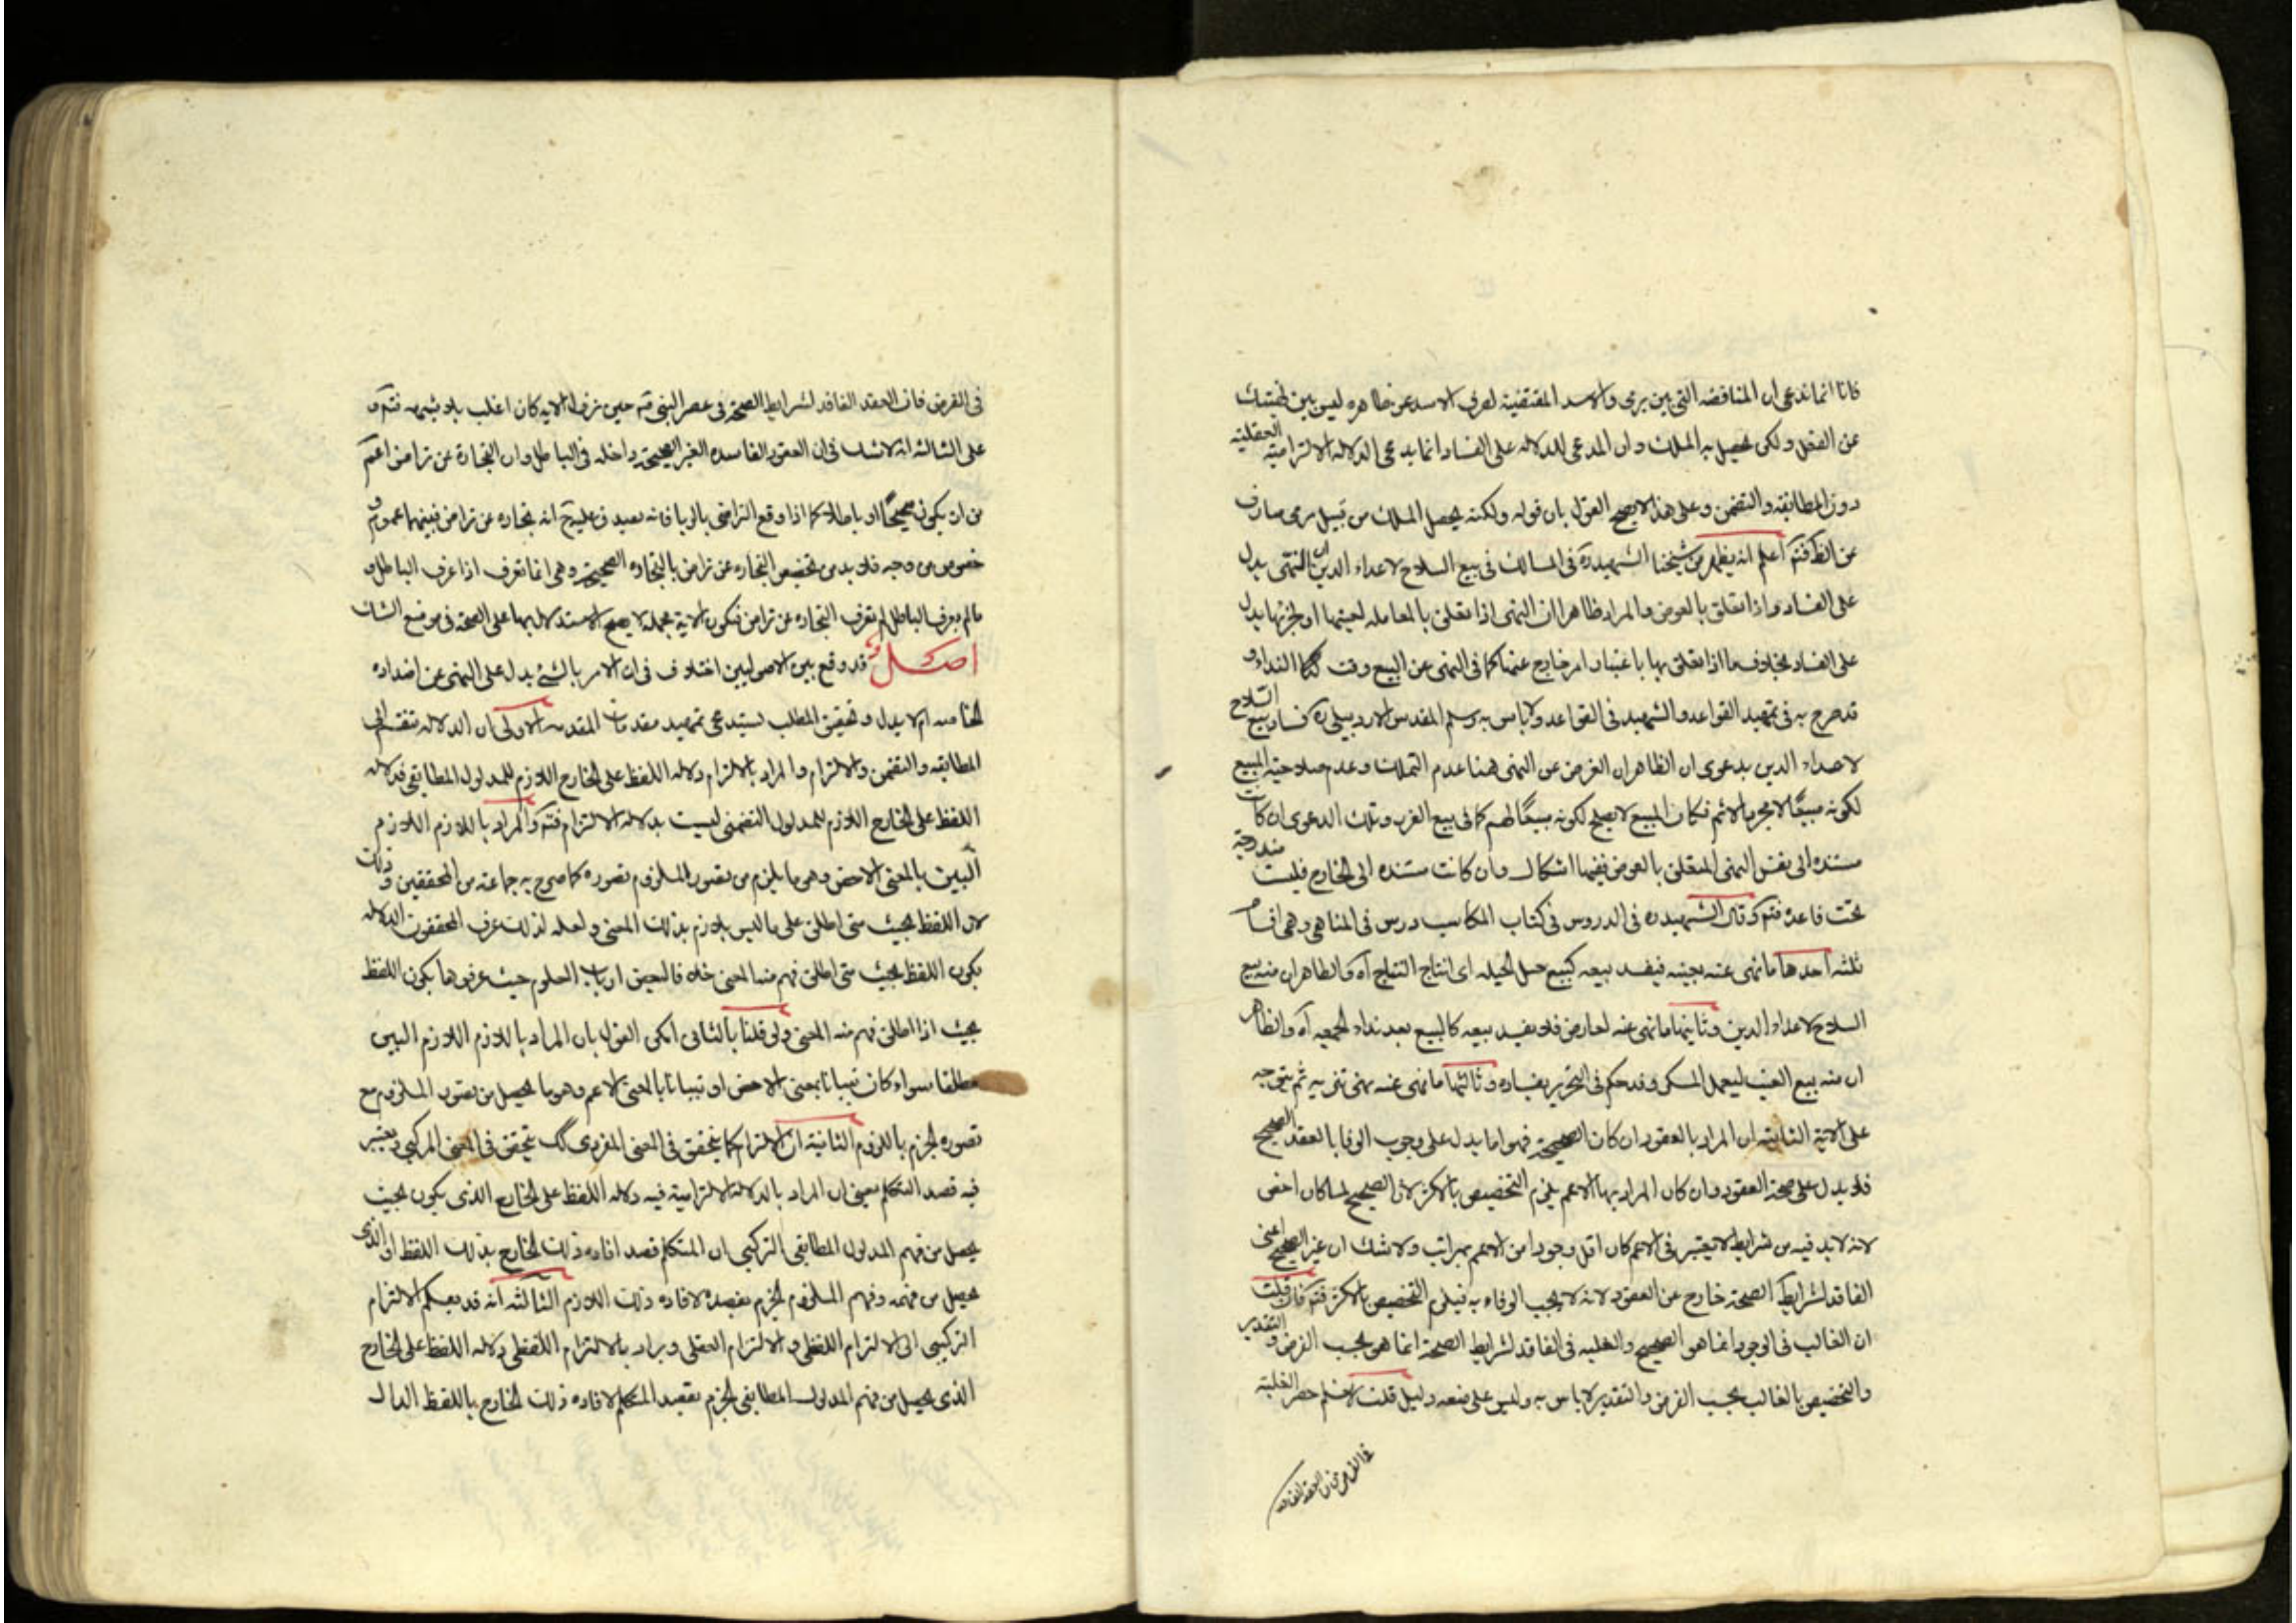 فانا انما ندعى ان المناقضه التى بين يرمى والاسد المقتضية لصرف الاسد عن ظاهره ليس بين
عن الفعل ولكن يحصل به الملك وان المدعى للدلاله على الفساد انما يدعى الدلاله الالتزامية العقلية
دون المطابقه والتضمن وعلى هذا لا يصح القول بان قوله ولكنه يحصل الملك من قبيل يرمى صارف
اعلم انه يظهر من شيخنا الشهيد ره فى المسالك فى بيع السلاح لاعداء الدين ان النهى يدل
على الفساد واذا تعلق بالعوض والمراد ظاهرا ان النهى اذا تعلق بالمعامله لعينها او لجزئها يدل
على الفساد بخلاف ما اذا تعلق بها باعتبار امر خارج عنها كما فى النهى عن البيع وقت النداء و
قد صرح به فى تمهيد القواعد والشهيد فى القواعد ولا باس به وسلم المقدس الاردبيلى ره فساد بيع السلاح
لاعداء الدين بدعوى ان الظاهر ان الغرض عن النهى هنا عدم التملك وعدم صلاحية المبيع
لكونه مبيعًا لا مجرد الاثم فكان المبيع لا يصلح لكونه مبيعًا لهم كما فى بيع الغرر وتلك الدعوى ان كانت
مستنده الى نفس النهى المتعلق بالعوض ففيها اشكال وان كانت مستنده الى الخارج فليست مندرجة
تحت قاعدة فتم وقال الشهيد ره فى الدروس فى كتاب المكاسب درس فى المناهى وهى اقسام
ثلثه احدها ما نهى عنه بعينه فيفسد بيعه كبيع حبل الحبله اى نتاج النتاج آه والظاهر ان منه بيع
السلاح لاعداء الدين وثانيها ما نهى عنه لعارض فلا يفسد بيعه كالبيع بعد نداء الجمعه آه والظاهر
ان منه بيع العنب ليعمل المسكر وقد حكم فى التحرير بفساده وثالثها ما نهى عنه نهى تنزيه ثم يتوجه
على الاية الثانية ان المراد بالعقود ان كان الصحيحة فهو اما يدل على وجوب الوفا بالعقد الصحيح
فلا يدل على صحة العقود وان كان المراد بها الاعم يلزم التخصيص بالاكثر لان الصحيح لما كان اخص
لانه لا بد فيه من شرايط لا يعتبر فى الاعم كان اقل وجودا من الاعم بمراتب ولا شك ان غير الصحيح اعنى
الفاقد لشرايط الصحة خارج عن العقود لانه لا يجب الوفاء به فيلزم التخصيص بالاكثر فتم فان قلت
ان الغالب فى الوجود انما هو الصحيح والغلبه فى الفاقد لشرايط الصحة انما هو بحسب الفرض و التقدير
والتخصيص بالغالب بحسب الفرض والتقدير لا باس به وليس على منعه دليل قلت لا نسلم حصر الغلبة
فى الفرض فان العقد الفاقد
فى الفرض فان العقد الفاقد لشرايط الصحة فى عصر النبى حين نزول الاية كان اغلب بلا شبهه فتم و
على الثالثه انه لا شك فى ان العقود الفاسده الغير الصحيحة داخله فى الباطل وان التجارة عن تراض اعم
من ان يكون صحيحًا او باطلا كما اذا وقع التراضى بالربا فانه يصدق عليه انه تجاره عن تراض فبينهما عموم و
خصوص من وجه فلا بد من تخصيص التجاره عن تراض بالتجاره الصحيحة وهى انما تعرف اذا عرف الباطل و
ما لم يعرف الباطل لم تعرف التجاره عن تراض فتكون الاية مجمله لا يصح الاستدلال بها على الصحة فى موضع الشك
اصل قد وقع بين الاصوليين اختلاف فى ان الامر بالشئ يدل على النهى عن اضداده
الخاصه ام لا يدل وتحقيق المطلب يستدعى تمهيد مقدمات المقدمه الاولى ان الدلاله تنقسم الى
المطابقه والتضمن والالتزام والمراد بالالتزام دلاله اللفظ على الخارج اللازم للمدلول المطابقى فدلاله
اللفظ على الخارج اللازم للمدلول التضمنى ليست بدلاله الالتزام فتم والمراد باللازم اللازم
البين بالمعنى الاخص وهو ما يلزم من تصور الملزوم تصوره كما صرح به جماعة من المحققين وذلك
لان اللفظ بحيث متى اطلق على ما ليس بلازم بذلك المعنى ولعله لذلك عرف المحققون الدلاله
بكون اللفظ بحيث متى اطلق فهم منه المعنى خلافا لبعض ارباب العلوم حيث عرفوها بكون اللفظ
بحيث اذا اطلق فهم منه المعنى ولو قلنا بالثانى امكن القول بان المراد باللازم اللازم البين
مطلقا سواء كان تبيانا بمعنى الاخص او تبيانا بالمعنى الاعم وهو ما يحصل من تصور الملزوم مع
تصوره الجزم باللزوم الثانية ان الالتزام كما يتحقق فى المعنى المفردى كك يتحقق فى المعنى المركبى ويعتبر
فيه قصد المتكلم بمعنى ان المراد بالدلاله الالتزامية فيه دلاله اللفظ على الخارج الذى يكون بحيث
يحصل من فهم المدلول المطابقى التركيبى ان المتكلم قصد افاده ذلك الخارج بذلك اللفظ او الذى
يحصل من فهمه وفهم الملزوم الجزم بقصده لافاده ذلك اللازم الثالثه انه قد ينقسم الالتزام
التركيبى الى الالتزام اللفظى والالتزام العقلى ويراد بالالتزام اللفظى دلاله اللفظ على الخارج
الذى يحصل من فهم المدلول المطابقى الجزم بقصد المتكلم لافاده ذلك الخارج باللفظ الدال